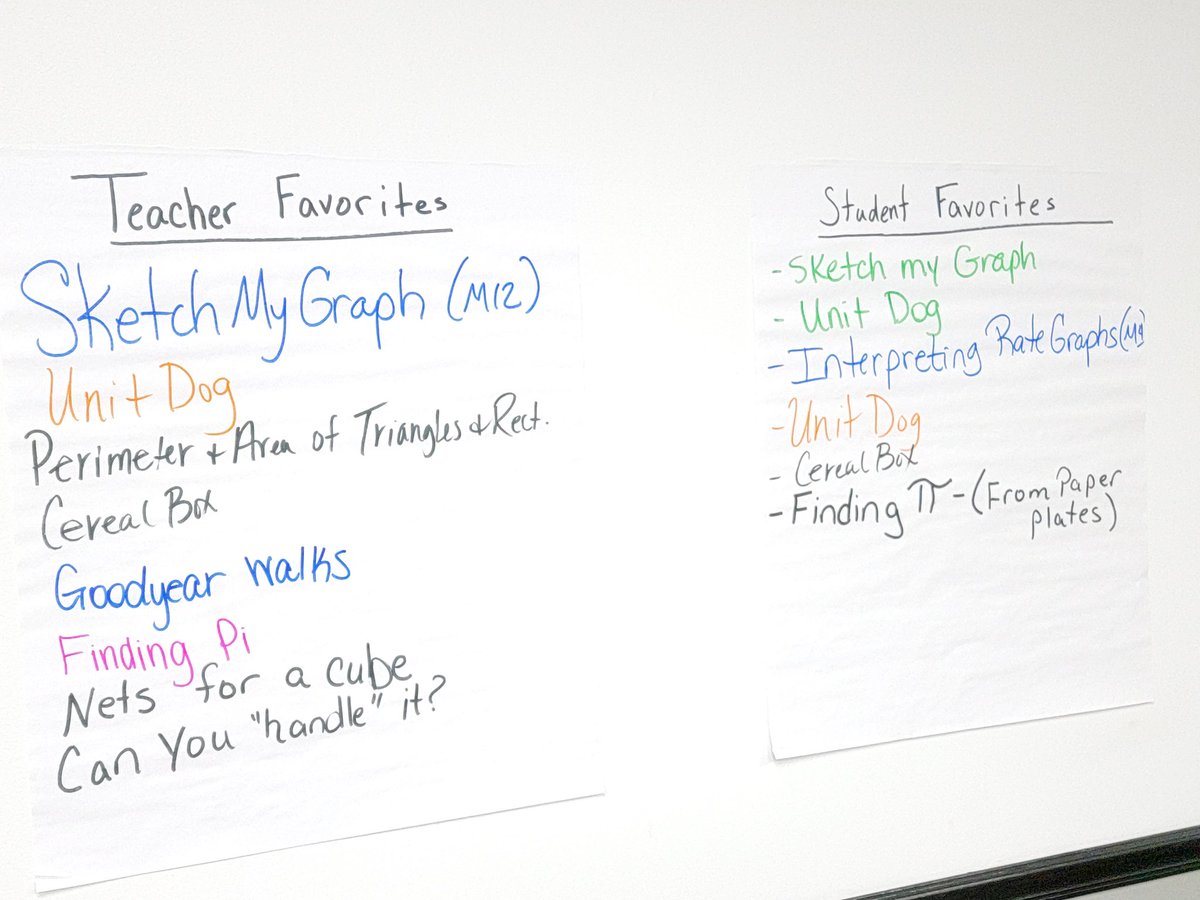 Teacher Favorites
Sketch My Graph (M12)
Unit Dog
Perimeter + Area of Triangles + Rect.
Cereal Box
Goodyear Walks
Finding Pi
Nets for a cube
Can You "handle" it?
Student Favorites
- Sketch my Graph
- Unit Dog
- Interpreting Rate Graphs
- Unit Dog
- Cereal Box
- Finding π - (From Paper
plates)